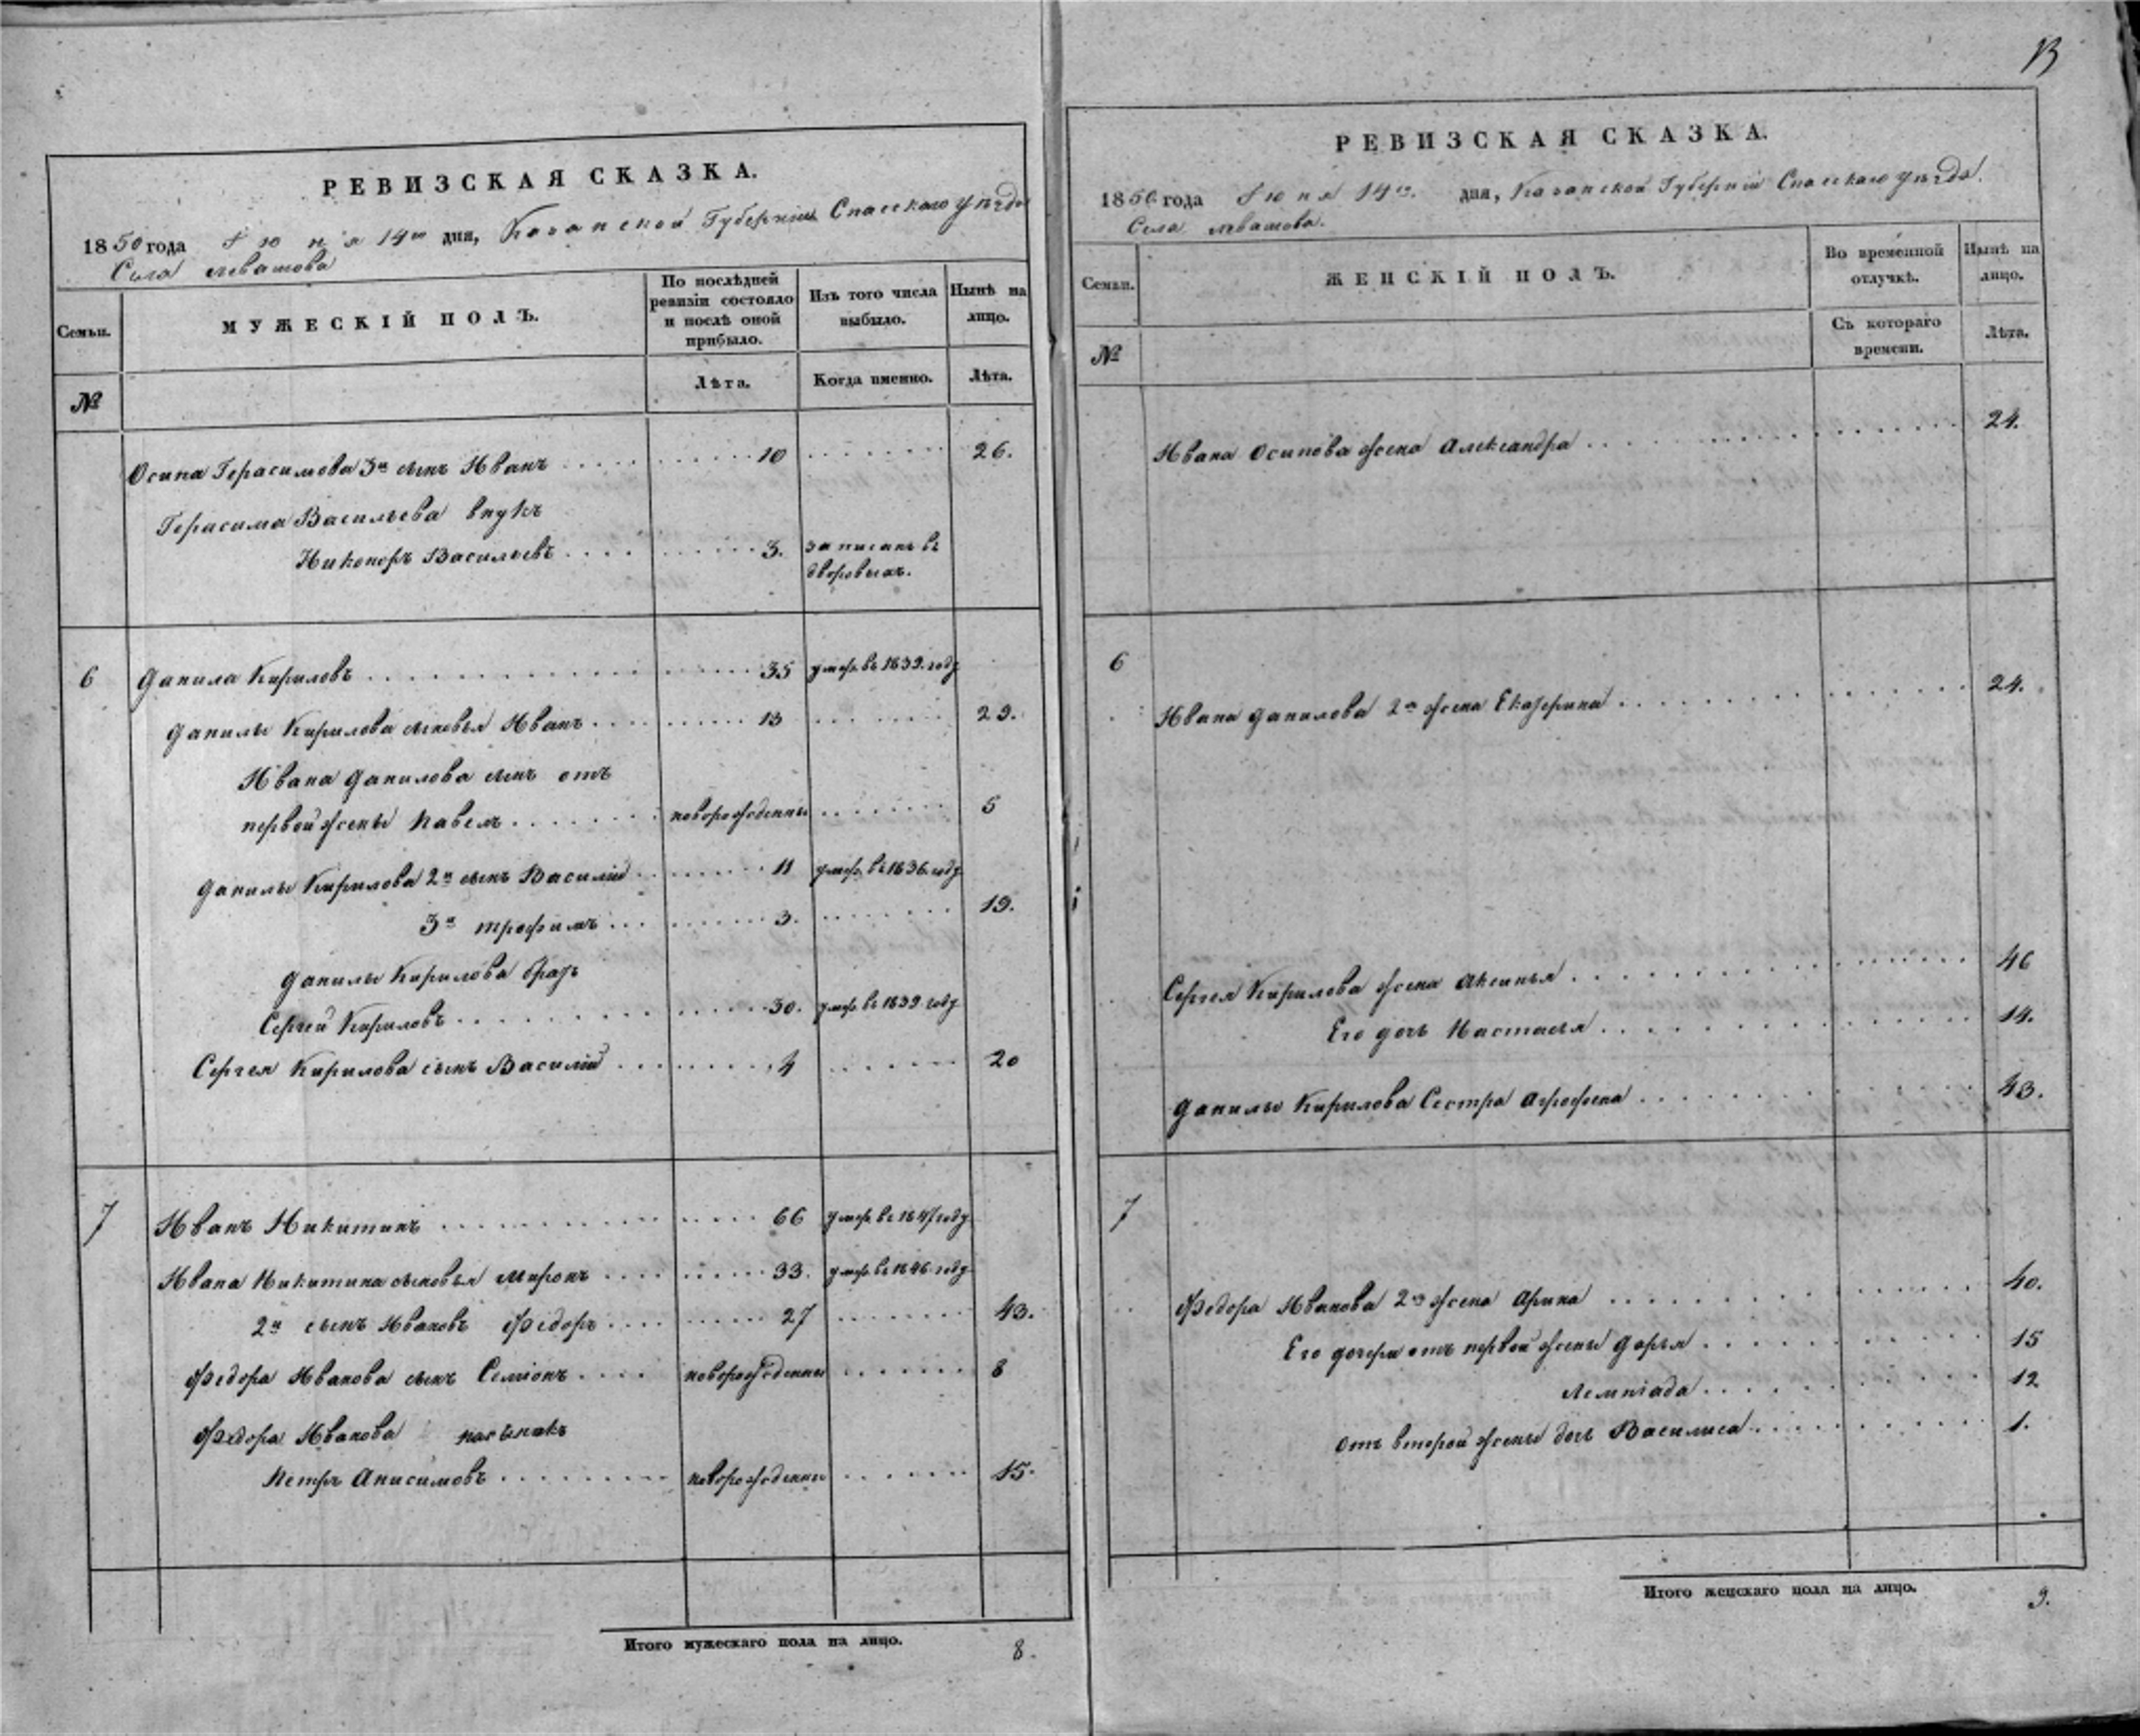 РЕВИЗСКАЯ СКАЗКА.
1850 года Іюня 14го дня, Казанской Губерніи Спасскаго уѣзда
Села Левашова
Семьи.
МУЖЕСКІЙ ПОЛЪ.
По послѣдней ревизіи состояло и послѣ оной прибыло.
Изъ того числа выбыло.
Нынѣ на лицо.
№
Лѣта.
Когда именно.
Лѣта.
Осипа Герасимова 3й сынъ Иванъ 10 26.
Герасима Васильева внукъ
Никоноръ Васильевъ 3. записанъ въ
дворовыхъ.
6 Данила Кириловъ 35 умер. въ 1839. году
Данилы Кирилова сыновья Иванъ 13 29.
Ивана Данилова сынъ отъ
первой жены Павелъ новорожденны 5
Данилы Кирилова 2й сынъ Василій 11 умер. въ 1836. году
3й Трофимъ 3. 19.
Данилы Кирилова братъ
Сергей Кириловъ 30. умер. въ 1839 году
Сергея Кирилова сынъ Василій 4 20
7 Иванъ Никитинъ 66 умер. въ 1847 году
Ивана Никитина сыновья Миронъ 33. умер. въ 1846. году
2й сынъ Ивановъ Федоръ 27 43.
Федора Иванова сынъ Семіонъ новорожденны 8
Федора Иванова пасынакъ
Петръ Анисимовъ новорожденны 15.
Итого мужескаго пола на лицо. 8.
13
РЕВИЗСКАЯ СКАЗКА.
1850 года Іюня 14го. дня, Казанской Губерніи Спасскаго уѣзда.
Села Левашова.
Семьи.
ЖЕНСКІЙ ПОЛЪ.
Во временной отлучкѣ.
Нынѣ на лицо.
№
Съ котораго времени.
Лѣта.
Ивана Осипова жена Александра 24.
6
Ивана Данилова 2я жена Екатерина 24.
Сергея Кирилова жена Аксинья 46
Его дочь Настасья 14.
Данилы Кирилова Сестра Аграфена 43.
7
Федора Иванова 2я жена Арина 40.
Его дочери отъ первой жены Дарья 15
Лемпіада 12
отъ второй жены дочь Василиса 1.
Итого женскаго пола на лицо. 9.